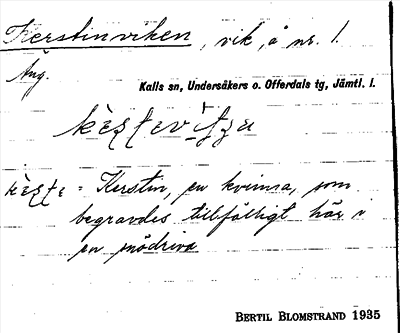 Kerstinviken, vik, å nr. 1.
Äng.
Kalls sn, Undersåkers o. Offerdals tg, Jämtl. l.
= Kerstin, en kvinna, som
begravdes tillfälligt här i
en snödriva
BERTIL BLOMSTRAND 1935